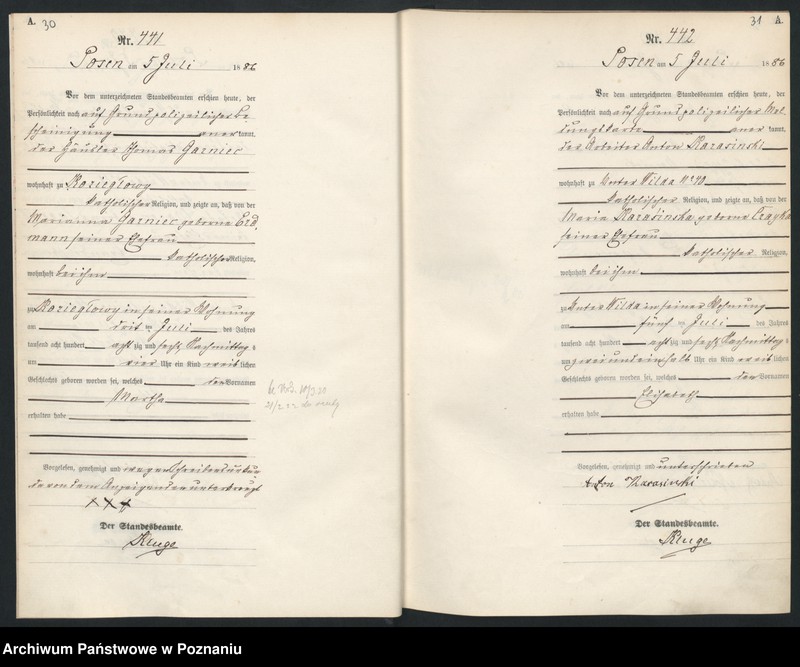 A. 30
Nr. 441
Posen am 5 Juli 1886
Vor dem unterzeichneten Standesbeamten erschien heute, der
Persönlichkeit nach auf Grund polizeilicher Be
scheinigung anerkannt,
des Häusler Thomas Garniec
wohnhaft zu Kozieglowy
katholischer Religion, und zeigte an, daß von der
Marianna Garniec geborne Erd
mann seiner Ehefrau
katholischer Religion,
wohnhaft bei ihm
zu Kozieglowy in seiner Wohnung
am drit ten Juli des Jahres
tausend acht hundert acht zig und sechs, Nachmittag s
um vier Uhr ein Kind weib lichen
Geschlechts geboren worden sei, welches den Vornamen
Martha
erhalten habe
Vorgelesen, genehmigt und wegen Schreibens
von dem Anzeigenden unterkreuzt
XXX
Der Standesbeamte.
Kluge
31 A.
Nr. 442
Posen am 5 Juli 1886
Vor dem unterzeichneten Standesbeamten erschien heute, der
Persönlichkeit nach auf Grund polizeilicher Mel
dungskarte anerkannt,
des Arbeiter Anton Karasinski
wohnhaft zu Unter Wilda No 40
katholischer Religion, und zeigte an, daß von der
Maria Karasinska geborne
seiner Ehefrau
katholischer Religion,
wohnhaft bei ihm
zu Unter Wilda in seiner Wohnung
am fünf ten Juli des Jahres
tausend acht hundert acht zig und sechs, Nachmittag s
um zwei und ein halb Uhr ein Kind weib lichen
Geschlechts geboren worden sei, welches den Vornamen
Elisabeth
erhalten habe
Vorgelesen, genehmigt und unterschrieben
Anton Karasinski
Der Standesbeamte.
Kluge
Archiwum Państwowe w Poznaniu